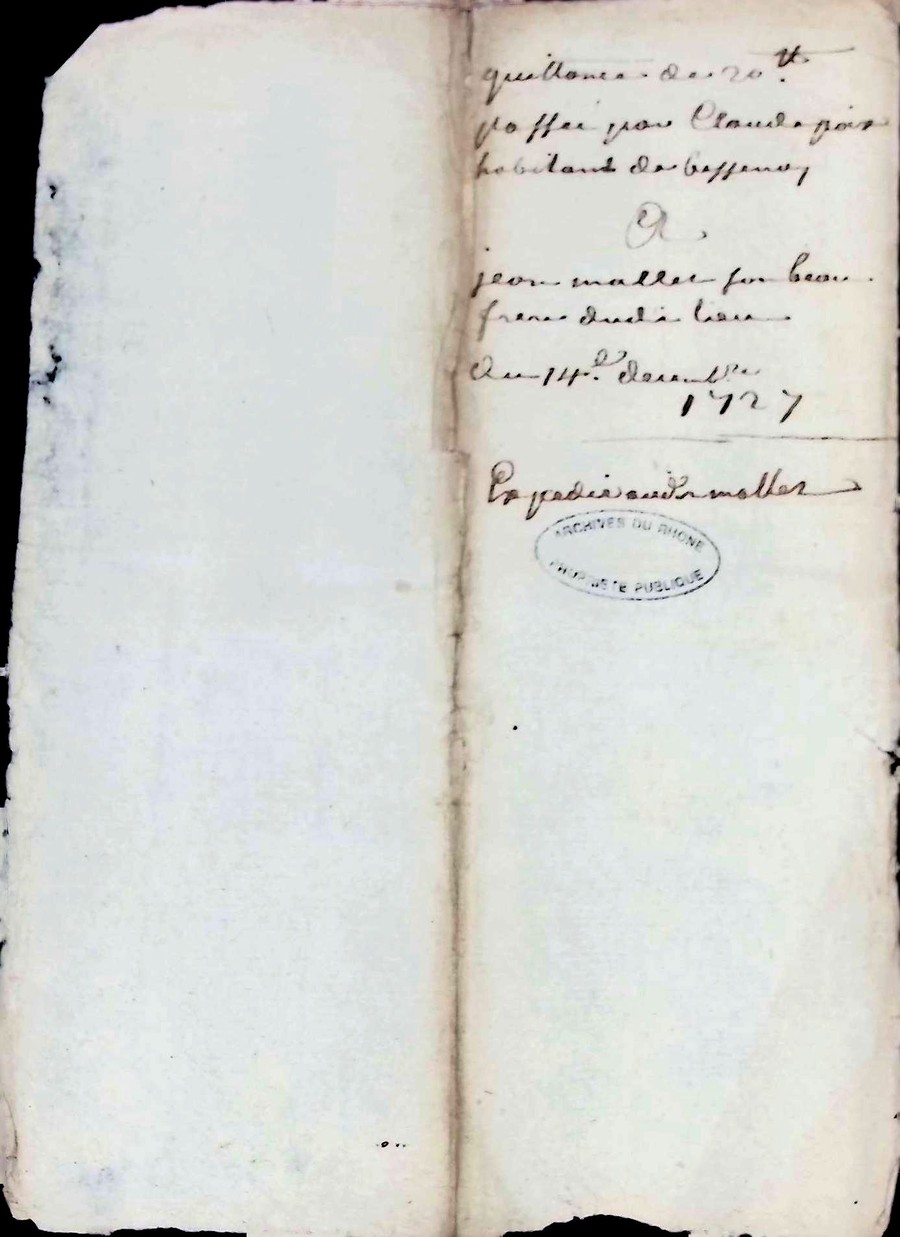 quittance de 20 tt.
passée par Claude
habitant de bessenay
A
jean mallet son beau
frere dudit lieu
du 14.e decembre
1727
Expedie audit mallet
ARCHIVES DU RHONE
PROPRIETE PUBLIQUE